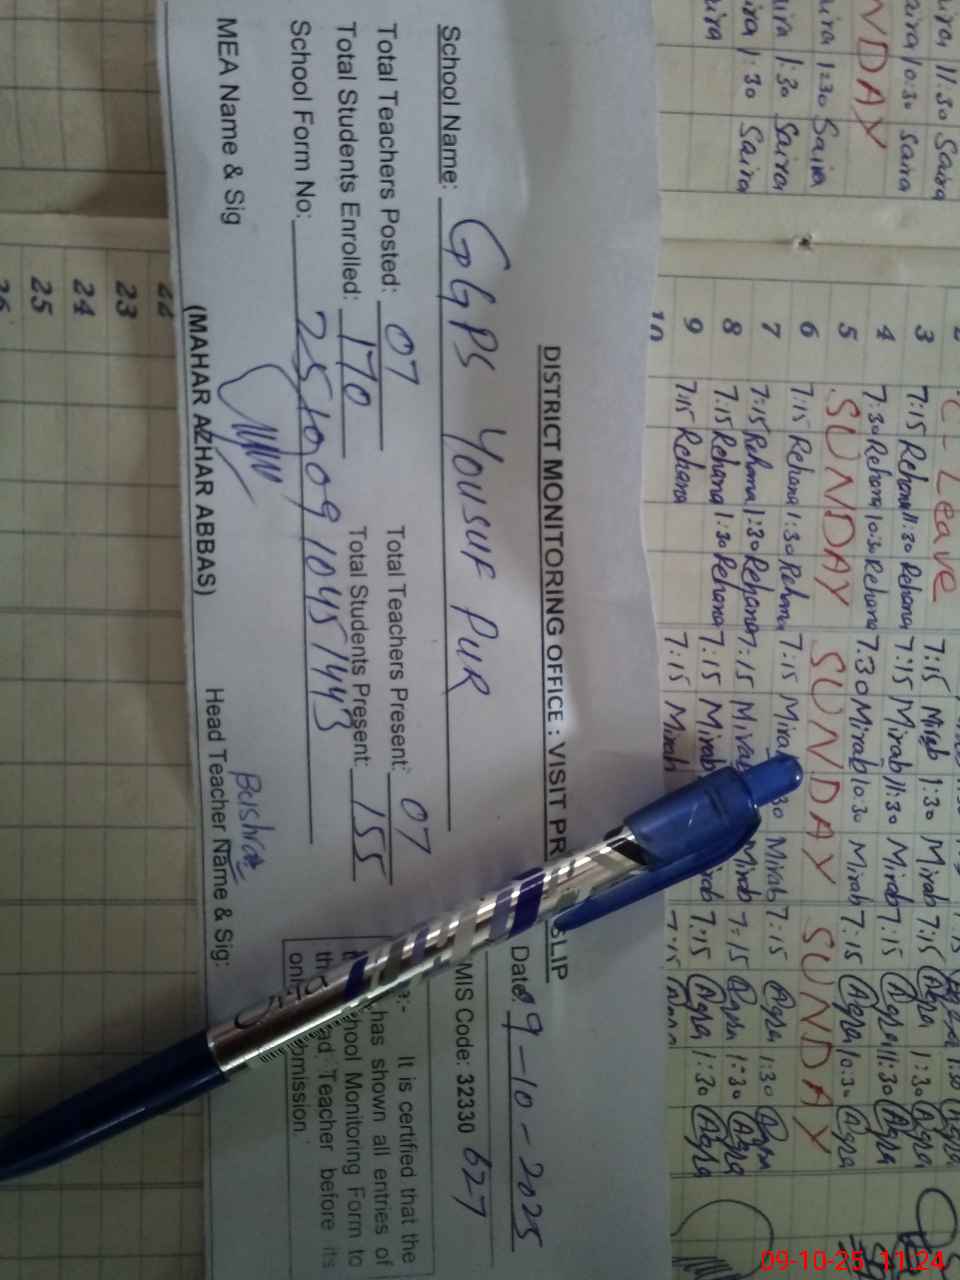 11:30 Saira
Saira 10:30 Saira
SUNDAY
Saira 1:30 Saira
1:30 Saira
1:30 Saira
3 7:15 Rehana 11:30 Rehana 7:15 Mirab 1:30 Mirab 7:15 Aqra 1:30 Aqra
4 7:30 Rehana 10:30 Rehana 7:15 Mirab 11:30 Mirab 7:15 Aqra 11:30 Aqra
5 SUNDAY 7:30 Mirab 10:30 Mirab 7:15 Aqra 10:30 Aqra
6 7:15 Rehana 1:30 Rehana SUNDAY SUNDAY
7 7:15 Rehana 1:30 Rehana 7:15 Mirab 1:30 Mirab 7:15 Aqra 1:30 Aqra
8 7:15 Rehana 1:30 Rehana 7:15 Mirab Mirab 7:15 Aqra 1:30 Aqra
9 7:15 Rehana 7:15 Mirab Mirab 7:15 Aqra 1:30 Aqra
10 7:15 Mirab 7:15
Leave
DISTRICT MONITORING OFFICE : VISIT SLIP
Date: 9-10-2025
School Name: GGPS YOUSUF PUR
MIS Code: 32330 627
Total Teachers Posted: 07 Total Teachers Present: 07
Total Students Enrolled: 170 Total Students Present: 155
School Form No: 2510091045 1443
It is certified that the
has shown all entries of
School Monitoring Form to
Teacher before its
submission.
MEA Name & Sig
(MAHAR AZHAR ABBAS)
Head Teacher Name & Sig:
Bushra
22
23
24
25
26
09-10-25 11:24